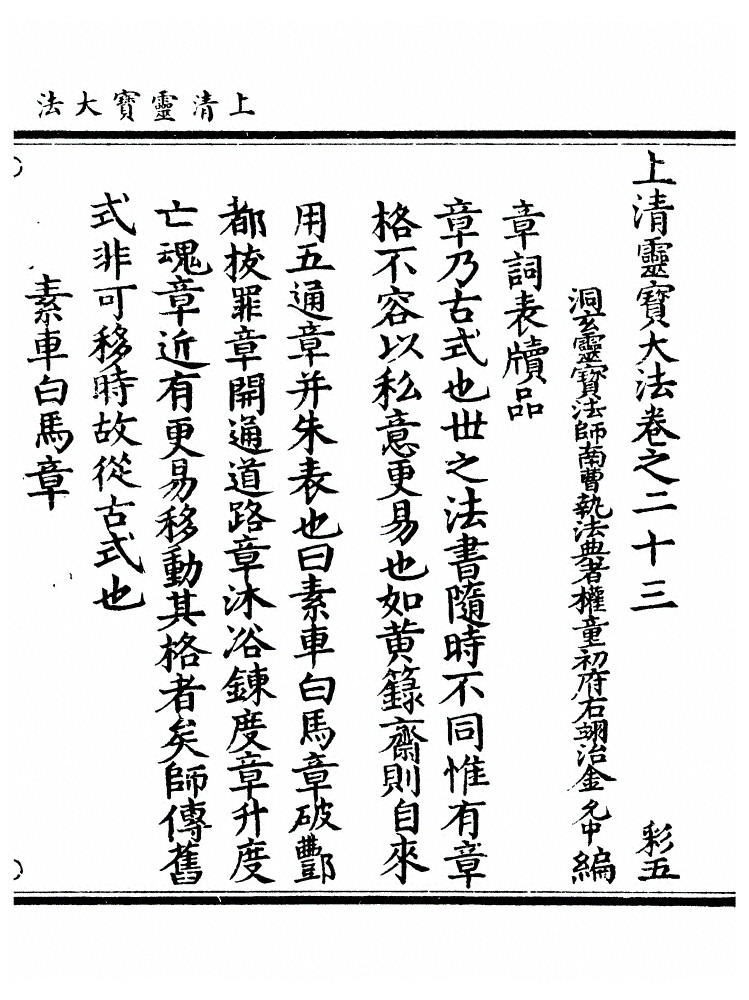 上清靈寶大法
上清靈寶大法卷之二十三 彩五
洞玄靈寶法師南曹執法典者權童初府右翊治金允中編
章詞表牘品
章乃古式也世之法書隨時不同惟有章
格不容以私意更易也如黃籙齋則自來
用五通章并朱表也曰素車白馬章破酆
都拔罪章開通道路章沐浴鍊度章升度
亡魂章近有更易移動其格者矣師傳舊
式非可移時故從古式也
素車白馬章